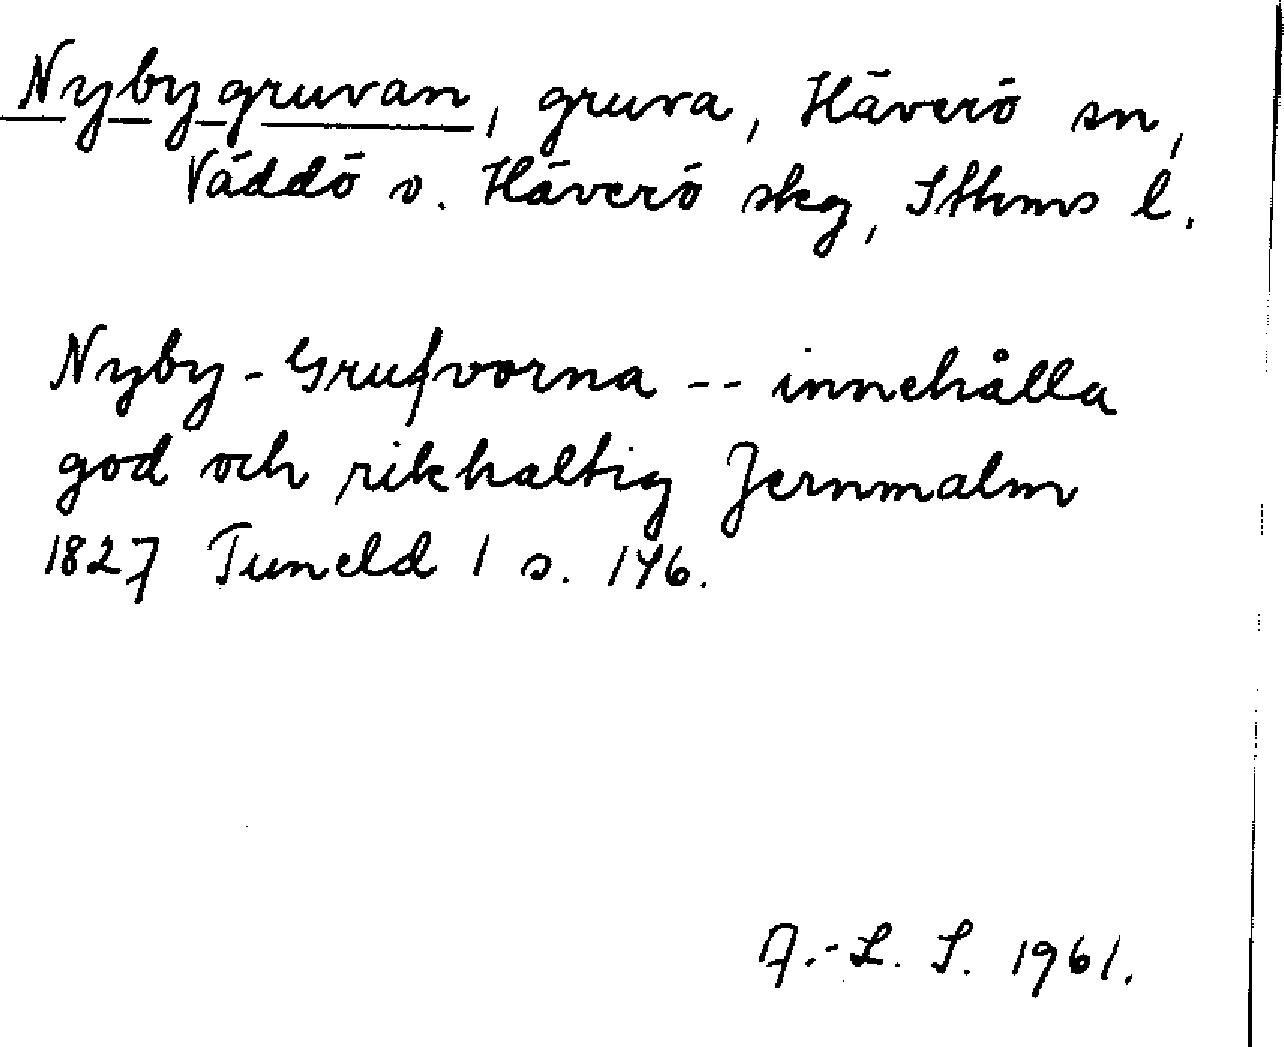 Nybygruvan, gruva, Häverö sn,
Väddö o. Häverö skg, Sthms l.
Nyby-Grufvorna -- innehålla
god och rikhaltig Jernmalm
1827 Tuneld 1 s. 146.
A.-L. S. 1961.